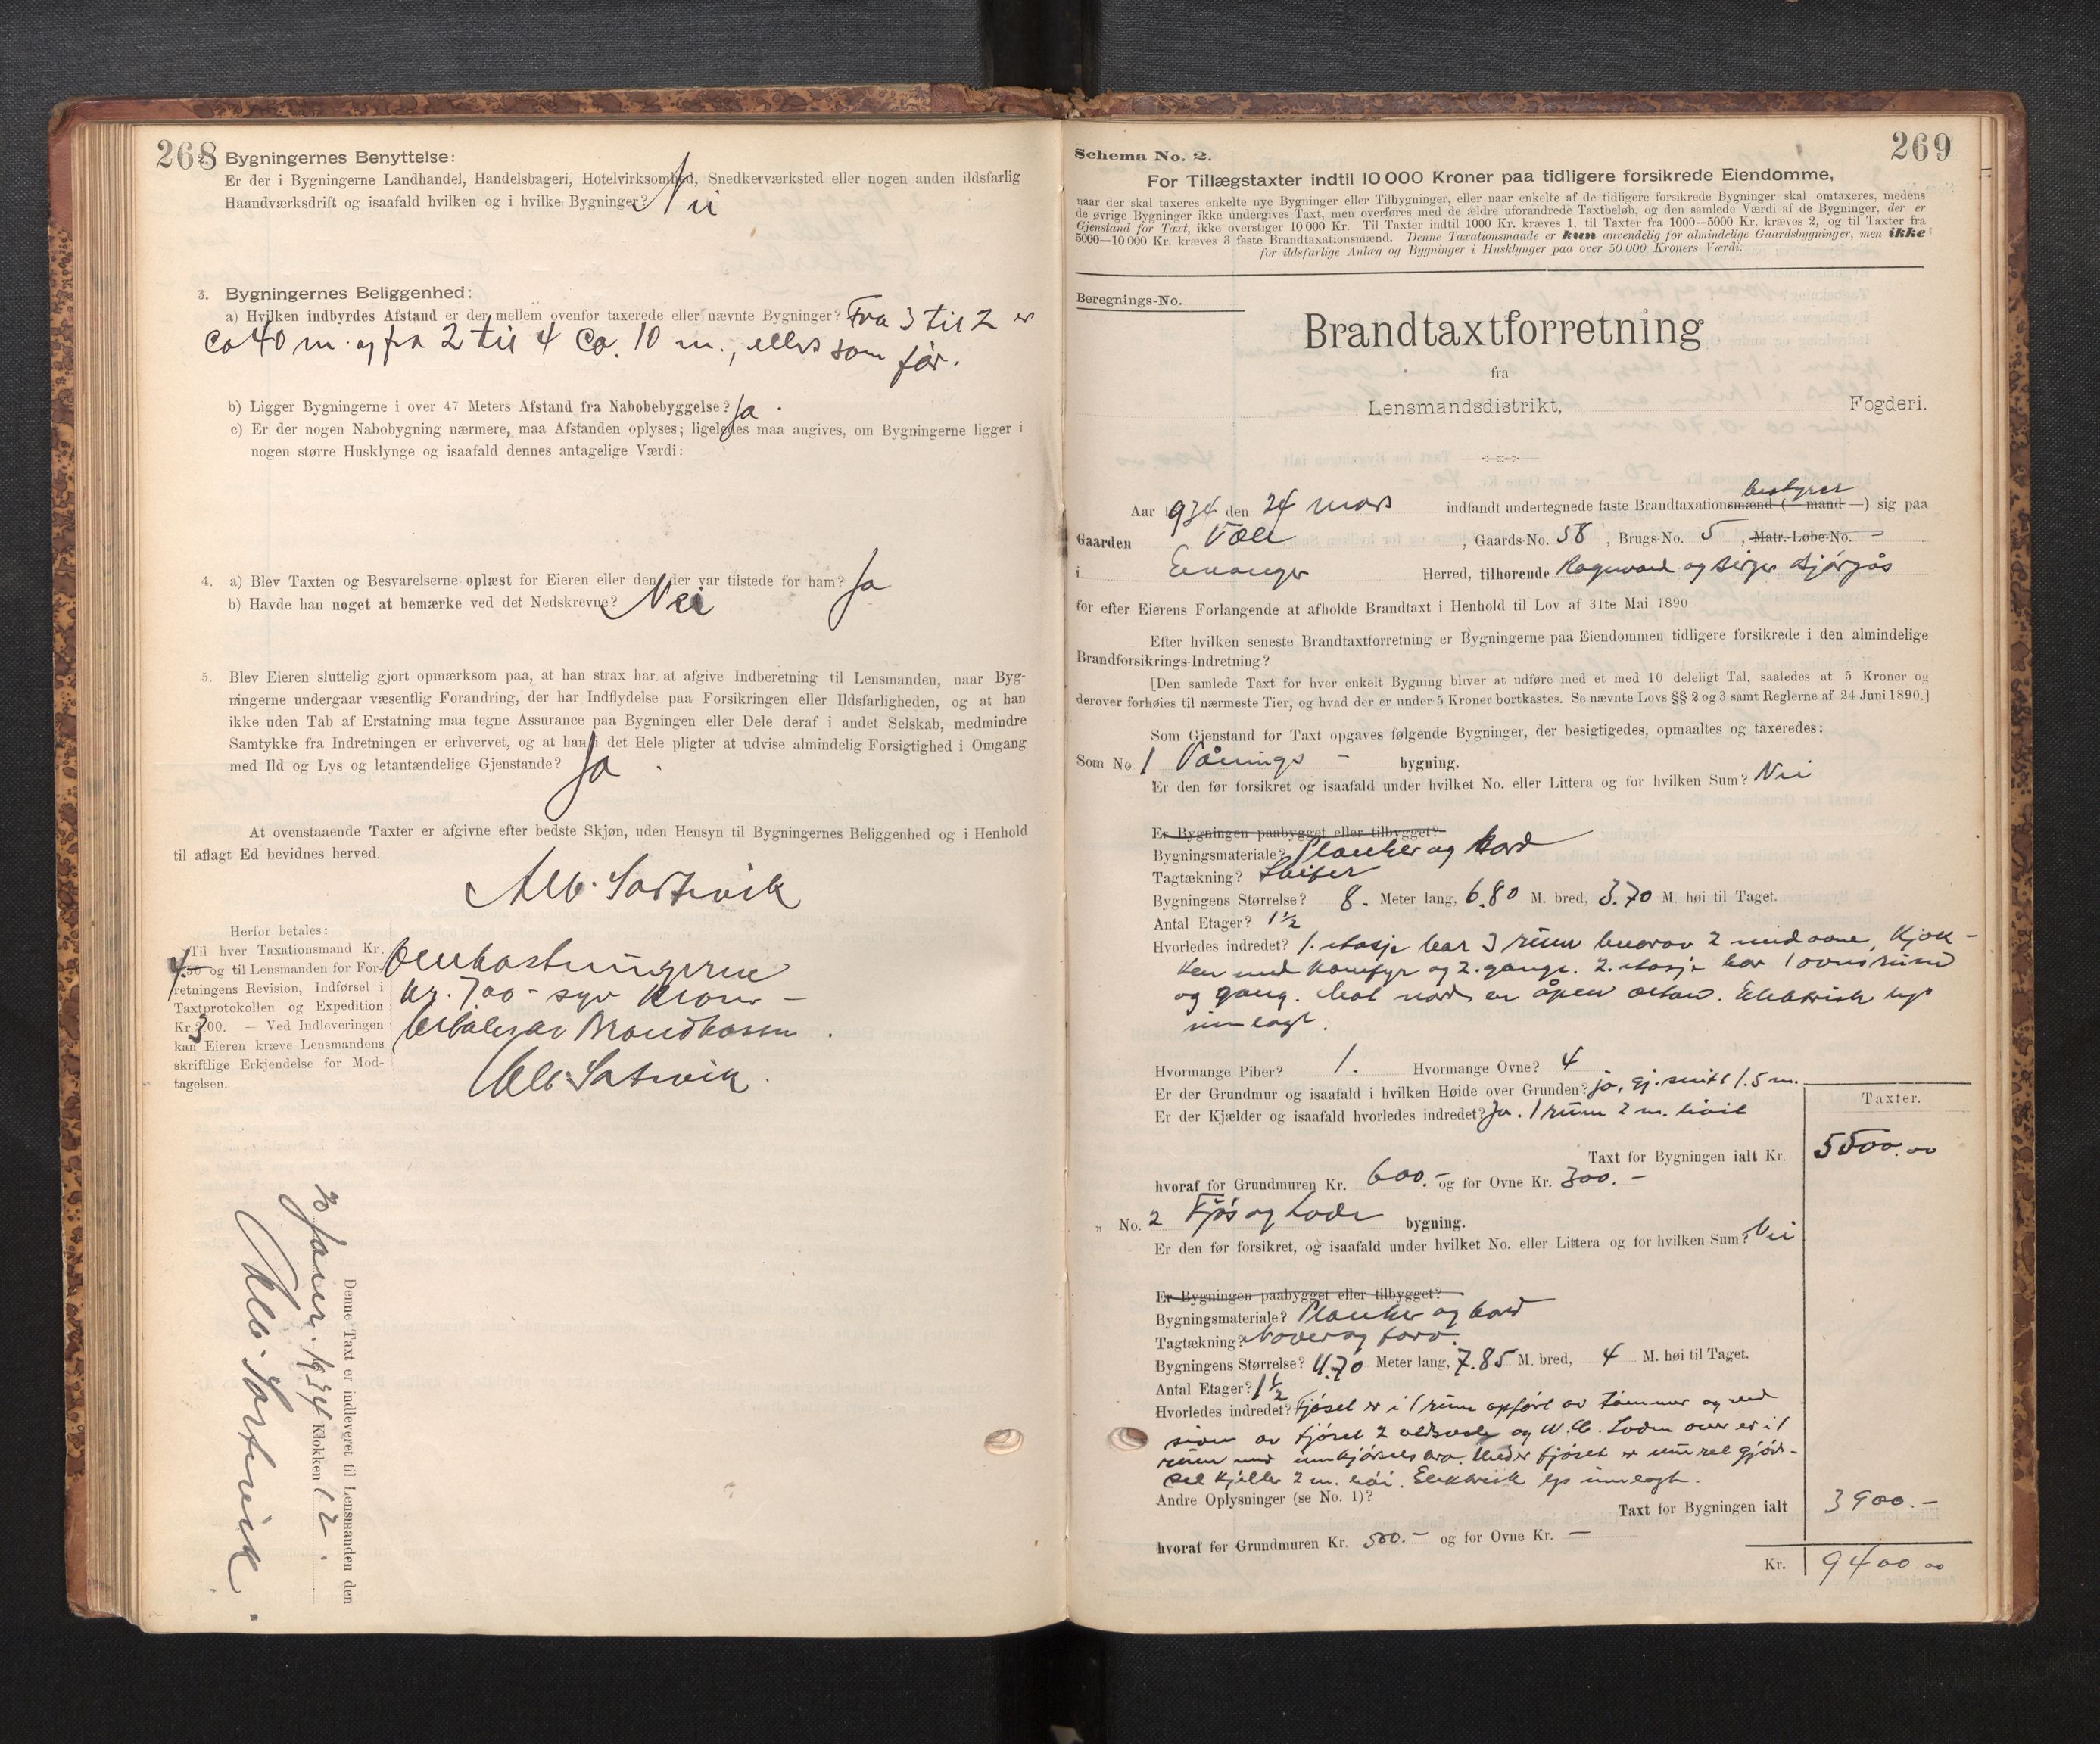 268
2. Bygningernes Benyttelse:
Er der i Bygningerne Landhandel, Handelsbageri, Hotelvirksomhed, Snedkerværksted eller nogen anden ildsfarlig
Haandværksdrift og isaafald hvilken og i hvilke Bygninger? Nei
3. Bygningernes Beliggenhed:
a) Hvilken indbyrdes Afstand er der mellem ovenfor taxerede eller nævnte Bygninger? Fra 3 til 2 er
ca 40 m. og fra 2 til 4 ca. 10 m., ellers som før.
b) Ligger Bygningerne i over 47 Meters Afstand fra Nabobebyggelse? Ja.
c) Er der nogen Nabobygning nærmere, maa Afstanden oplyses; ligeledes maa angives, om Bygningerne ligger i
nogen større Husklynge og isaafald dennes antagelige Værdi:
4. a) Blev Taxten og Besvarelserne oplæst for Eieren eller den, der var tilstede for ham? Ja
b) Havde han noget at bemærke ved det Nedskrevne? Nei
5. Blev Eieren sluttelig gjort opmærksom paa, at han strax har at afgive Indberetning til Lensmanden, naar Byg-
ningerne undergaar væsentlig Forandring, der har Indflydelse paa Forsikringen eller Ildsfarligheden, og at han
ikke uden Tab af Erstatning maa tegne Assurance paa Bygningen eller Dele deraf i andet Selskab, medmindre
Samtykke fra Indretningen er erhvervet, og at han i det Hele pligter at udvise almindelig Forsigtighed i Omgang
med Ild og Lys og letantændelige Gjenstande? Ja.
At ovenstaaende Taxter er afgivne efter bedste Skjøn, uden Hensyn til Bygningernes Beliggenhed og i Henhold
til aflagt Ed bevidnes herved.
Herfor betales:
Til hver Taxationsmand Kr.
4.50 og til Lensmanden for For-
retningens Revision, Indførsel i
Taxtprotokollen og Expedition
Kr. 3.00. — Ved Indleveringen
kan Eieren kræve Lensmandens
skriftlige Erkjendelse for Mod-
tagelsen.
Omkostningerne
kr. 7.00 - syv kroner -
Denne Taxt er indleveret til Lensmanden den
Klokken 12.
269
Schema No. 2.
For Tillægstaxter indtil 10 000 Kroner paa tidligere forsikrede Eiendomme,
naar der skal taxeres enkelte nye Bygninger eller Tilbygninger, eller naar enkelte af de tidligere forsikrede Bygninger skal omtaxeres, medens
de øvrige Bygninger ikke undergives Taxt, men overføres med de ældre uforandrede Taxtbeløb, og den samlede Værdi af de Bygninger, der er
Gjenstand for Taxt, ikke overstiger 10 000 Kr. Til Taxter indtil 1000 Kr. kræves 1, til Taxter fra 1000—5000 Kr. kræves 2, og til Taxter fra
5000—10 000 Kr. kræves 3 faste Brandtaxationsmænd. Denne Taxationsmaade er kun anvendelig for almindelige Gaardsbygninger, men ikke
for ildsfarlige Anlæg og Bygninger i Husklynger paa over 50 000 Kroners Værdi.
Beregnings-No.
Brandtaxtforretning
fra
Lensmandsdistrikt, Fogderi.
Aar 1934 den 24 mars indfandt undertegnede faste Brandtaxationsmænd (— mand —) bestyrer sig paa
Gaarden , Gaards-No. 58 , Brugs-No. 5 , Matr.-Løbe-No. -
i Evanger Herred, tilhørende Ragnvald og Birger
for efter Eierens Forlangende at afholde Brandtaxt i Henhold til Lov af 31te Mai 1890
Efter hvilken seneste Brandtaxtforretning er Bygningerne paa Eiendommen tidligere forsikrede i den almindelige
Brandforsikrings-Indretning?
[Den samlede Taxt for hver enkelt Bygning bliver at udføre med et med 10 deleligt Tal, saaledes at 5 Kroner og
derover forhøies til nærmeste Tier, og hvad der er under 5 Kroner bortkastes. Se nævnte Lovs §§ 2 og 3 samt Reglerne af 24 Juni 1890.]
Som Gjenstand for Taxt opgaves følgende Bygninger, der besigtigedes, opmaaltes og taxeredes:
Som No 1 Vånings - bygning.
Er den før forsikret og isaafald under hvilket No. eller Littera og for hvilken Sum? Nei
Er Bygningen paabygget eller tilbygget?
Bygningsmateriale? Planker og bord
Tagtækning? Skifer
Bygningens Størrelse? 8. Meter lang, 6.80 M. bred, 3.70 M. høi til Taget.
Antal Etager? 1 ½
Hvorledes indredet? 1. etasje har 3 rum hvorav 2 med ovne, kjøk-
ken med komfyr og 2 gange. 2. etasje har 1 ovnsrum
og gang. Mot nord er åpen altan. Elektrisk lys
innlagt.
Hvormange Piber? 1. Hvormange Ovne? 4
Er der Grundmur og isaafald i hvilken Høide over Grunden? ja, gj.snitt 1.5 m.
Er der Kjælder og isaafald hvorledes indredet? Ja. 1 rum 2 m. høit
Taxter.
Taxt for Bygningen ialt Kr. 5500.00
hvoraf for Grundmuren Kr. 600.- og for Ovne Kr. 300.-
„ No. 2 Fjøs og Lode bygning.
Er den før forsikret, og isaafald under hvilket No. eller Littera og for hvilken Sum? Nei
Er Bygningen paabygget eller tilbygget?
Bygningsmateriale? Planker og bord
Tagtækning? Never og torv.
Bygningens Størrelse? 11.70 Meter lang, 7.85 M. bred, 4 M. høi til Taget.
Antal Etager? 1 ½
Hvorledes indredet? Fjøset er i 1 rum opført av tømmer og ved
siden av fjøset 2 og W.C. Loden over er i 1
rum med innkjørselsbro. Under fjøset er gjød-
sel kjeller 2 m. høi. Elektrisk lys innlagt.
Andre Oplysninger (se No. 1)?
Taxt for Bygningen ialt 3900.-
hvoraf for Grundmuren Kr. 500.- og for Ovne Kr. —
Kr. 9400.00